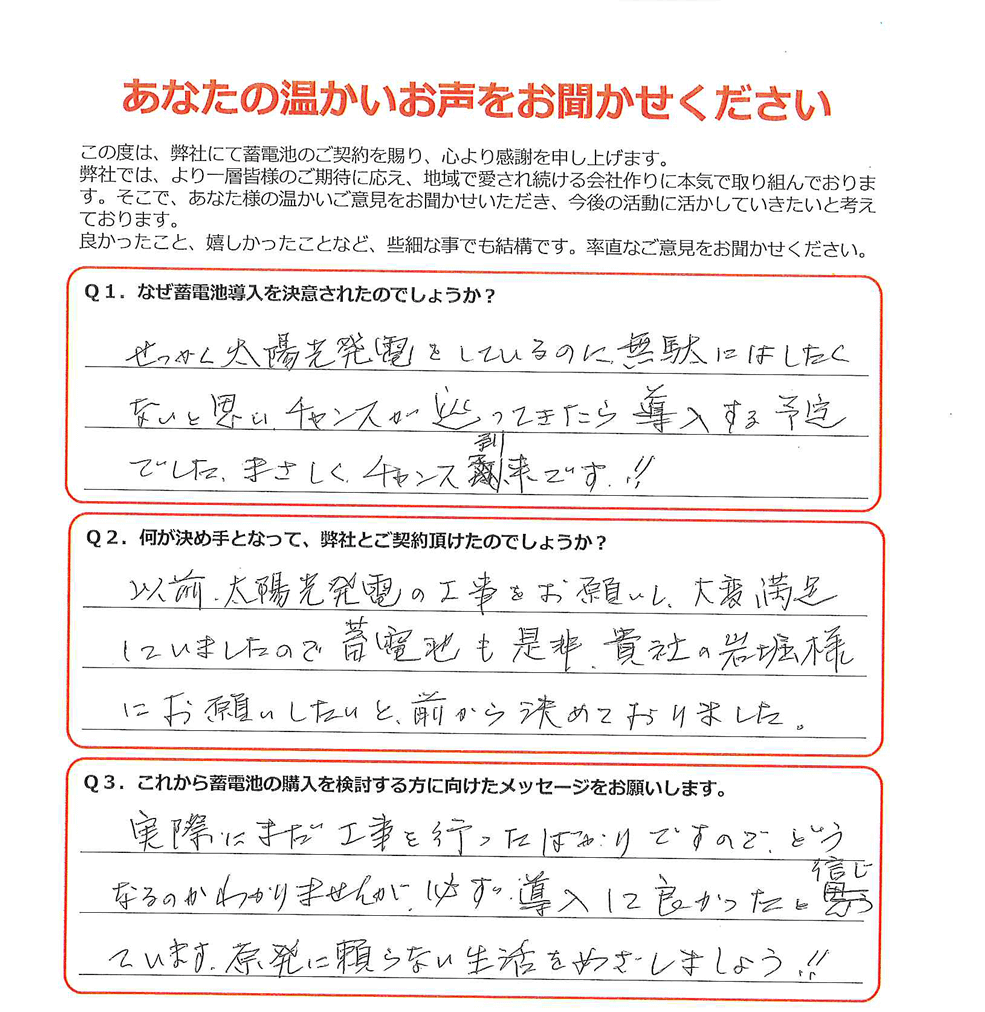 あなたの温かいお声をお聞かせください
この度は、弊社にて蓄電池のご契約を賜り、心より感謝を申し上げます。
弊社では、より一層皆様のご期待に応え、地域で愛され続ける会社作りに本気で取り組んでおりま
す。そこで、あなた様の温かいご意見をお聞かせいただき、今後の活動に活かしていきたいと考え
ております。
良かったこと、嬉しかったことなど、些細な事でも結構です。率直なご意見をお聞かせください。
Q1．なぜ蓄電池導入を決意されたのでしょうか？
せっかく太陽光発電をしているのに、無駄にはしたく
ないと思い、チャンスが巡ってきたら導入する予定
でした、まさしく、チャンス到来です、!!
Q2．何が決め手となって、弊社とご契約頂けたのでしょうか？
以前、太陽光発電の工事をお願いし、大変満足
していましたので蓄電池も是非、貴社の岩堀様
にお願いしたいと、前から決めておりました。
Q3．これから蓄電池の購入を検討する方に向けたメッセージをお願いします。
実際にまだ工事を行ったばかりですので、どう
なるのかわかりませんが、必ず、導入して良かったと信じ
ています、原発に頼らない生活をめざしましょう!!